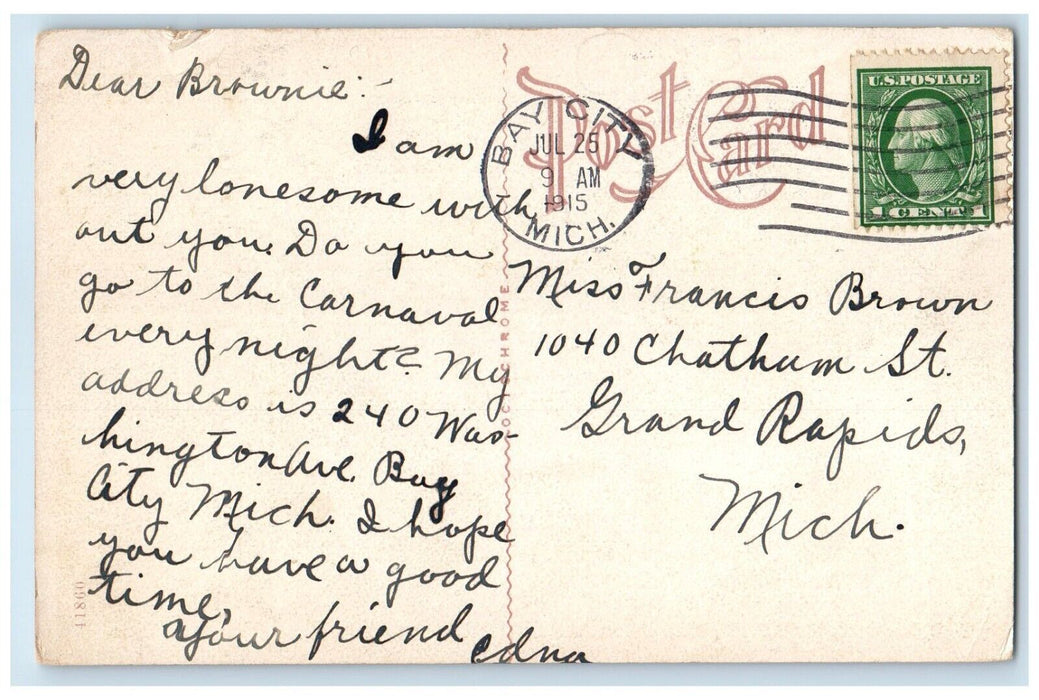 Dear Brownie:-
I am
very lonesome with
out you. Do you
go to the Carnaval
every night? My
address is 240 Was-
hington Ave. Bay
City Mich. I hope
you have a good
time.
Your friend
Edna
41860
Post Card
BAY CITY
JUL 25
9 AM
1915
MICH.
U.S. POSTAGE
1 CENT 1
Miss Francis Brown
1040 Chatham St.
Grand Rapids,
Mich.